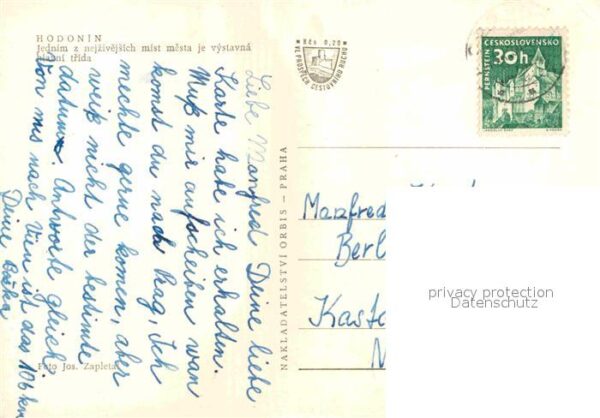 HODONÍN
Jedním z nejživějších míst města je výstavná
hlavní třída
Liebe Manfred Deine liebe
Karte habe ich erhalten.
Muß mir aufscheiben wan
komst du nach Prag, Ich
mechte gerne komen, aber
weiß nicht der bestimte
datum. Antworte gleich.
Von mus nach Wien ist das 106 km
Deine
Foto Jos. Zapletal
NAKLADATELSTVÍ ORBIS — PRAHA
Kčs 0,20
VE PROSPĚCH CESTOVNÍHO RUCHU
ČESKOSLOVENSKO
30h
PERNŠTEJN
Manfred
Berl
Kasta
N
privacy protection
Datenschutz